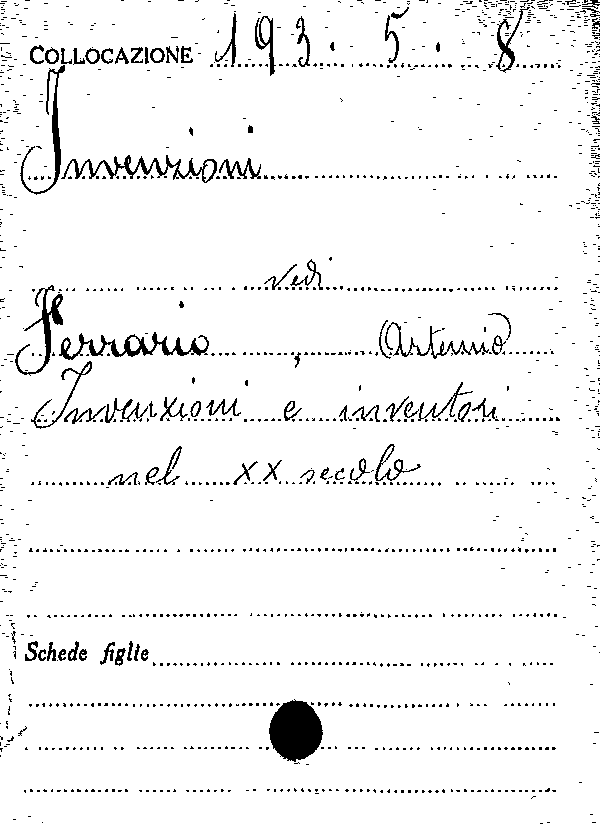 COLLOCAZIONE 193. 5. 8
Invenzioni
vedi
Ferrario, Artemio
Invenzioni e inventori
nel XX secolo
Schede figlie